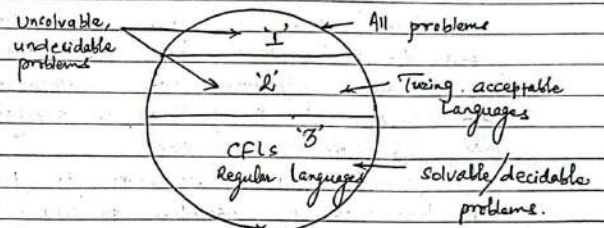 unsolvable,
undecidable
problems
All problems
'1'
'2'
Turing acceptable
Languages
'3'
CFLs
Regular Languages
Solvable/decidable
problems.